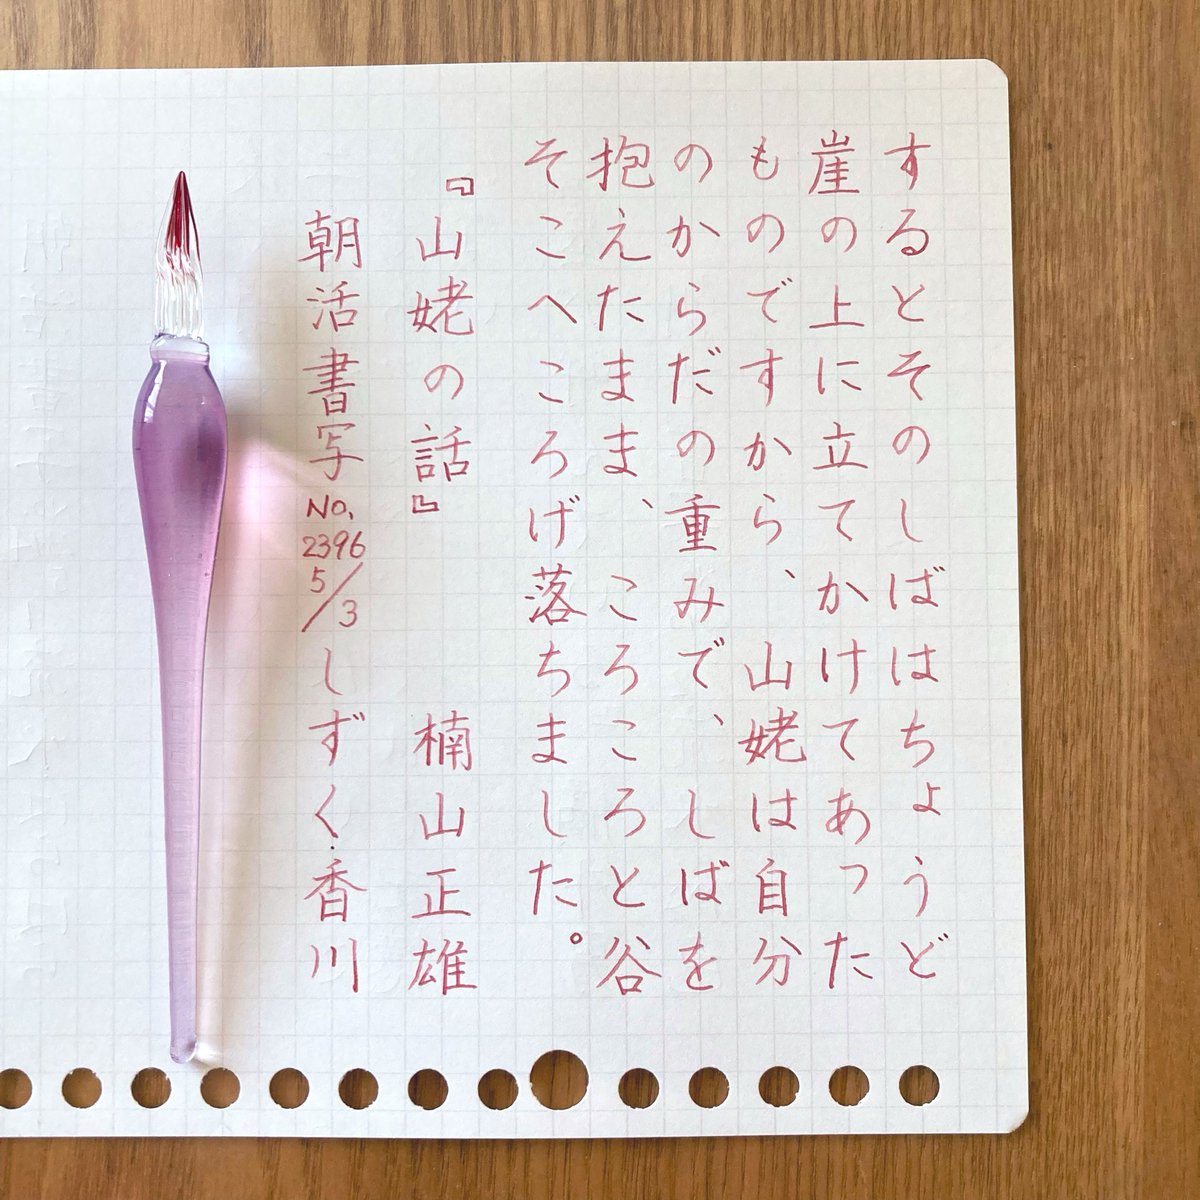 するとそのしばはちょうど
崖の上に立てかけてあった
ものですから、山姥は自分
のからだの重みで、しばを
抱えたまま、ころころと谷
そこへころげ落ちました。
『山姥の話』 楠山正雄
朝活書写No.2396 5/3しずく.香川